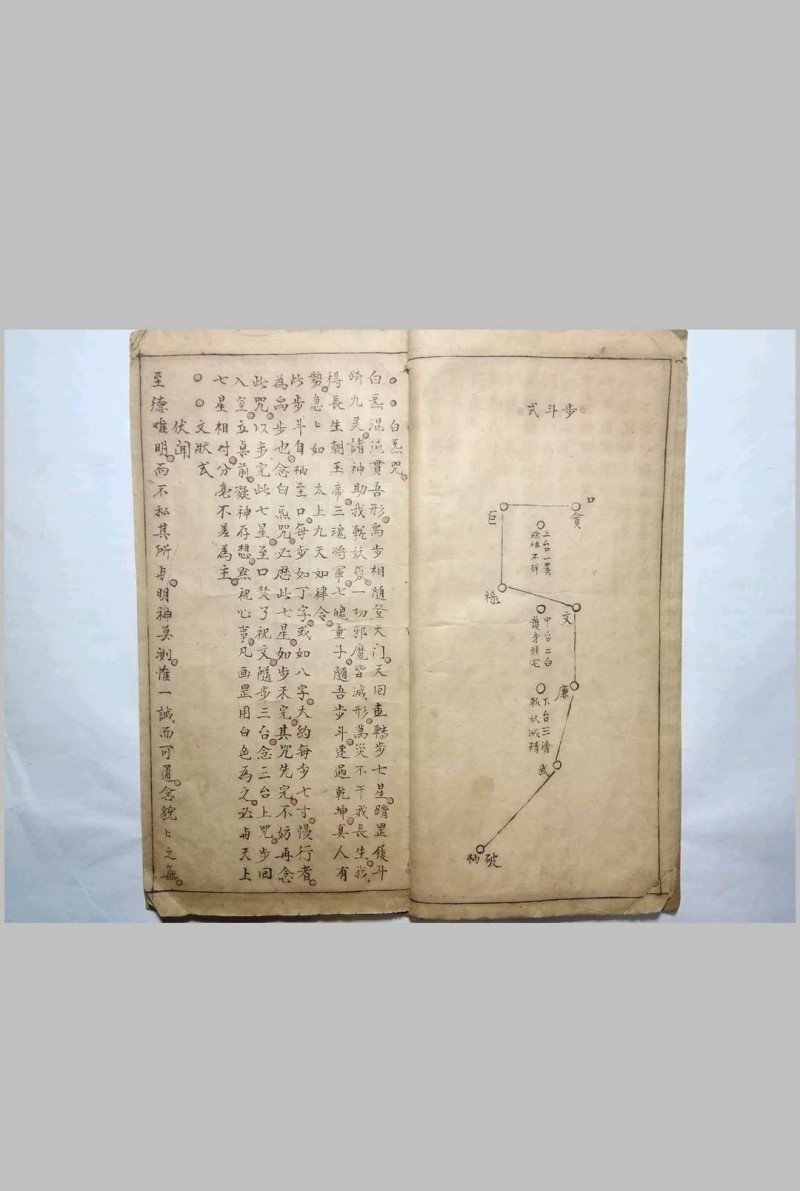 步斗式
口
貪
巨
上台一黃
除
不祥
祿
文
中台二白
護身鎮宅
廉
下台三清
斬妖滅精
武
破
柄
白炁咒
白炁混沌貫吾形禹步相随登天门天回直轉步七星踏罡履斗
踦九灵諸神助我斬妖
一切邪魔皆滅形萬災不干我長生我
得長生朝玉帝三魂將軍七魄童子隨吾步斗速過乾坤真人有
勢急匕如　太上九天如律令
此步斗自柄至口每步如丁字或如八字大約每步七寸慢行者
為禹步也念白炁咒必歷此七星如步未完其咒先完不妨再念
此咒以步完此七星至口焚了祝文隨步三台念三台上咒步回
入室立桌前凝神存想默祝心事凡画罡用白色為之必与天上
七星相对分毫不差為主
文狀式
伏闻
至德唯明而不私其所与明神莫測惟一誠而可通念貌匕之無